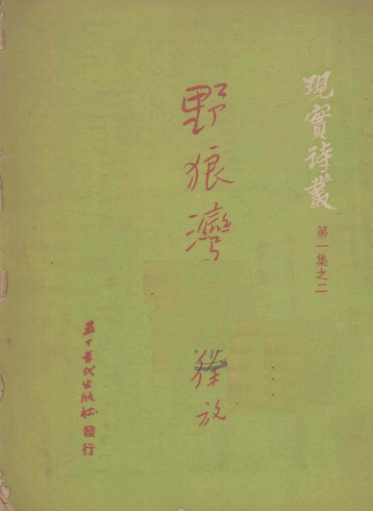 現實詩叢
第一集之二
野狼灣
徐放
五十年代出版社發行